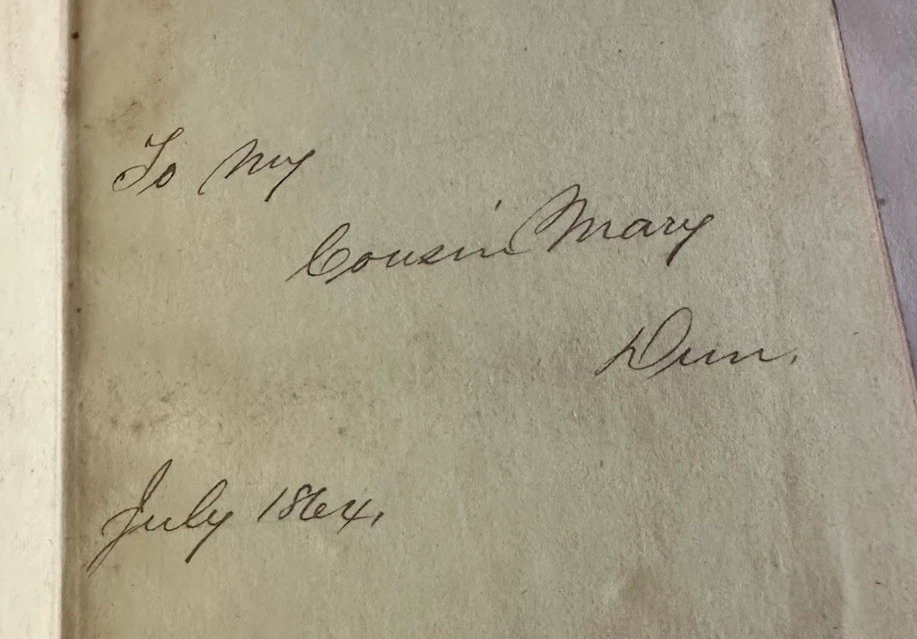 To My
Cousin Mary
Dunn.
July 1864.